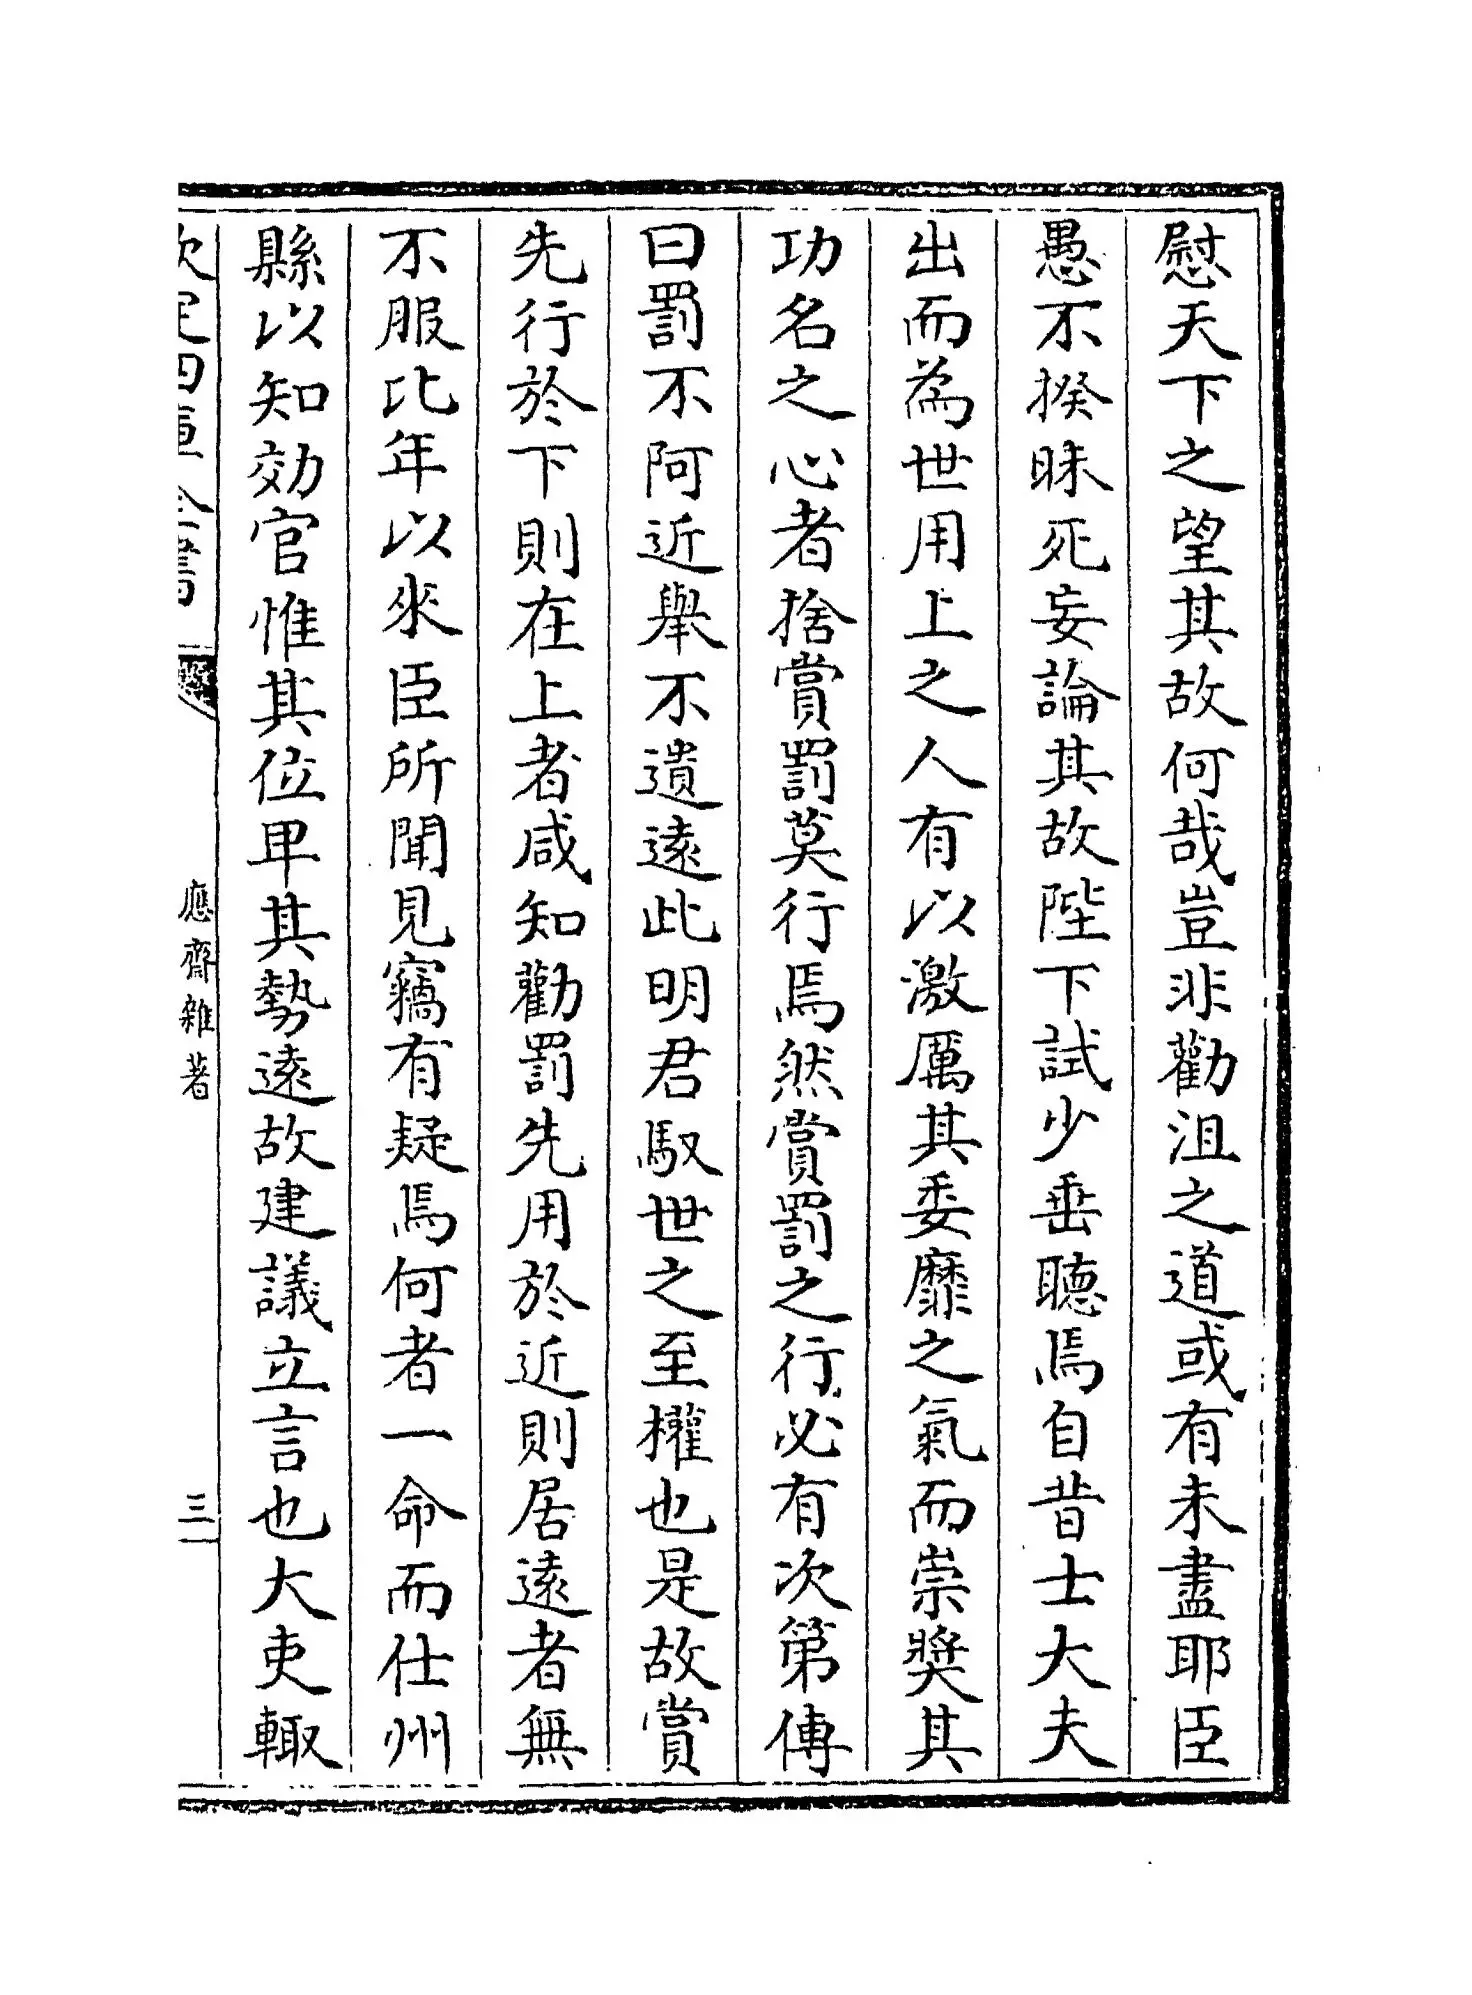 慰天下之望其故何哉豈非勸沮之道或有未盡耶臣
愚不揆昧死妄論其故陛下試少垂聽焉自昔士大夫
出而為世用上之人有以激厲其委靡之氣而崇奨其
功名之心者捨賞罰莫行焉然賞罰之行必有次第傳
曰罰不阿近舉不遺遠此明君馭世之至權也是故賞
先行於下則在上者咸知勸罰先用於近則居遠者無
不服比年以來臣所聞見竊有疑焉何者一命而仕州
縣以知効官惟其位卑其勢遠故建議立言也大吏輙
欽定四庫全書
應齋雜著
三